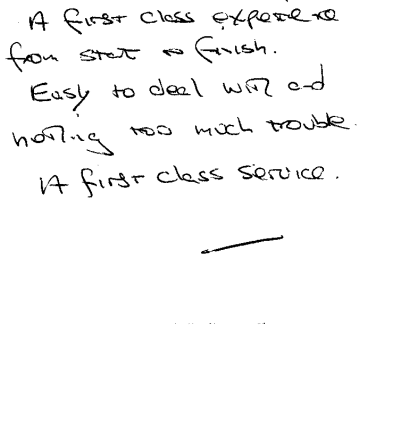 A first class experience
from start to finish.
Easy to deal with and
nothing too much trouble.
A first class service.